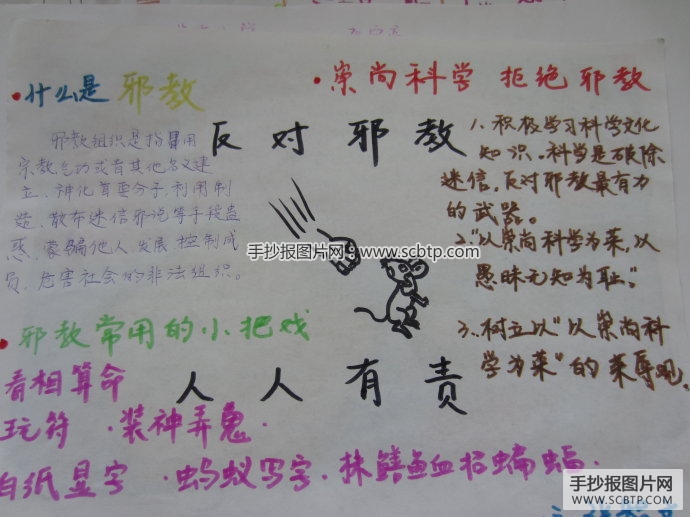 什么是 邪教
邪教组织是指冒用
宗教气功或者其他名义建
立、神化首要分子,利用制
造、散布迷信邪说等手段蛊
惑、蒙骗他人,发展、控制成
员,危害社会的非法组织。
反对邪教
人人有责
崇尚科学 拒绝邪教
1. 积极学习科学文化
知识。科学是破除
迷信,反对邪教最有力
的武器。
2."以崇尚科学为荣,以
愚昧无知为耻。"
3. 树立以"以崇尚科
学为荣"的荣辱观。
邪教常用的小把戏
看相算命
玩符 · 装神弄鬼 ·
白纸显字 · 蚂蚁写字 · 抹鳝鱼血招蝙蝠 ·
手抄报图片网 - www.scbtp.com
手抄报图片网
WWW.SCBTP.COM